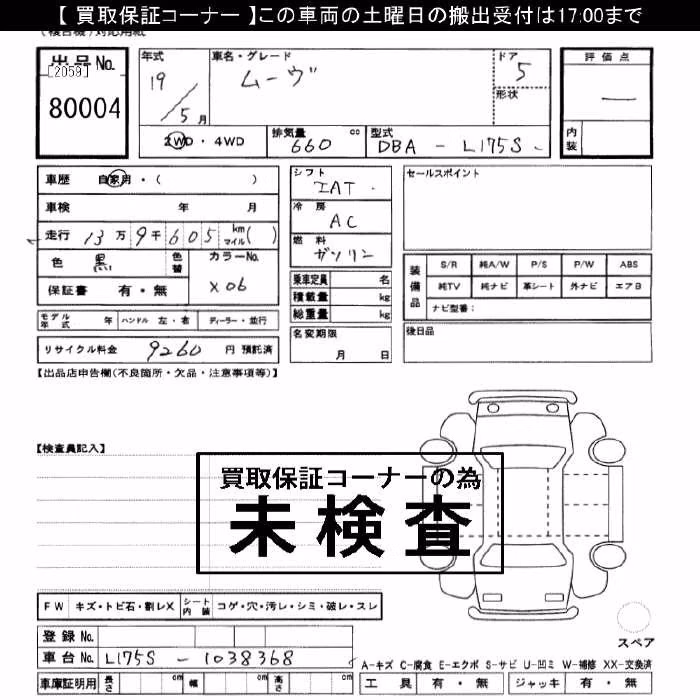 【 買取保証コーナー 】この車両の土曜日の搬出受付は17:00まで
出品No.
[2059]
80004
年式
19
5月
車名・グレード
ムーヴ
ドア
5
形状
評価点
―
内装
2WD・4WD
排気量
660 cc
型式
DBA - L175S
車歴 自家用・( )
車検 年 月
走行 13万 9千 605 km マイル( )
色 黒
色替
カラーNo.
X06
保証書 有・無
モデル年式 年 ハンドル 左・右 ディーラー・並行
リサイクル料金 9260 円 預託済
シフト
IAT
冷房
AC
燃料
ガソリン
乗車定員 名
積載量 kg
総重量 kg
名変期限
月 日
セールスポイント
装備品
S/R 純A/W P/S P/W ABS
純TV 純ナビ 革シート 外ナビ エアB
ナビ型番：
後日品
【出品店申告欄(不良箇所・欠品・注意事項等)】
【検査員記入】
買取保証コーナーの為
未検査
FW キズ・トビ石・割レX シート内装 コゲ・穴・汚レ・シミ・破レ・スレ
スペア
登録 No.
車台 No. L175S - 1038368
A-キズ C-腐食 E-エクボ S-サビ U-凹ミ W-補修 XX-交換済
車庫証明用 長さ cm 幅 cm 高さ cm
工具 有・無 ジャッキ 有・無